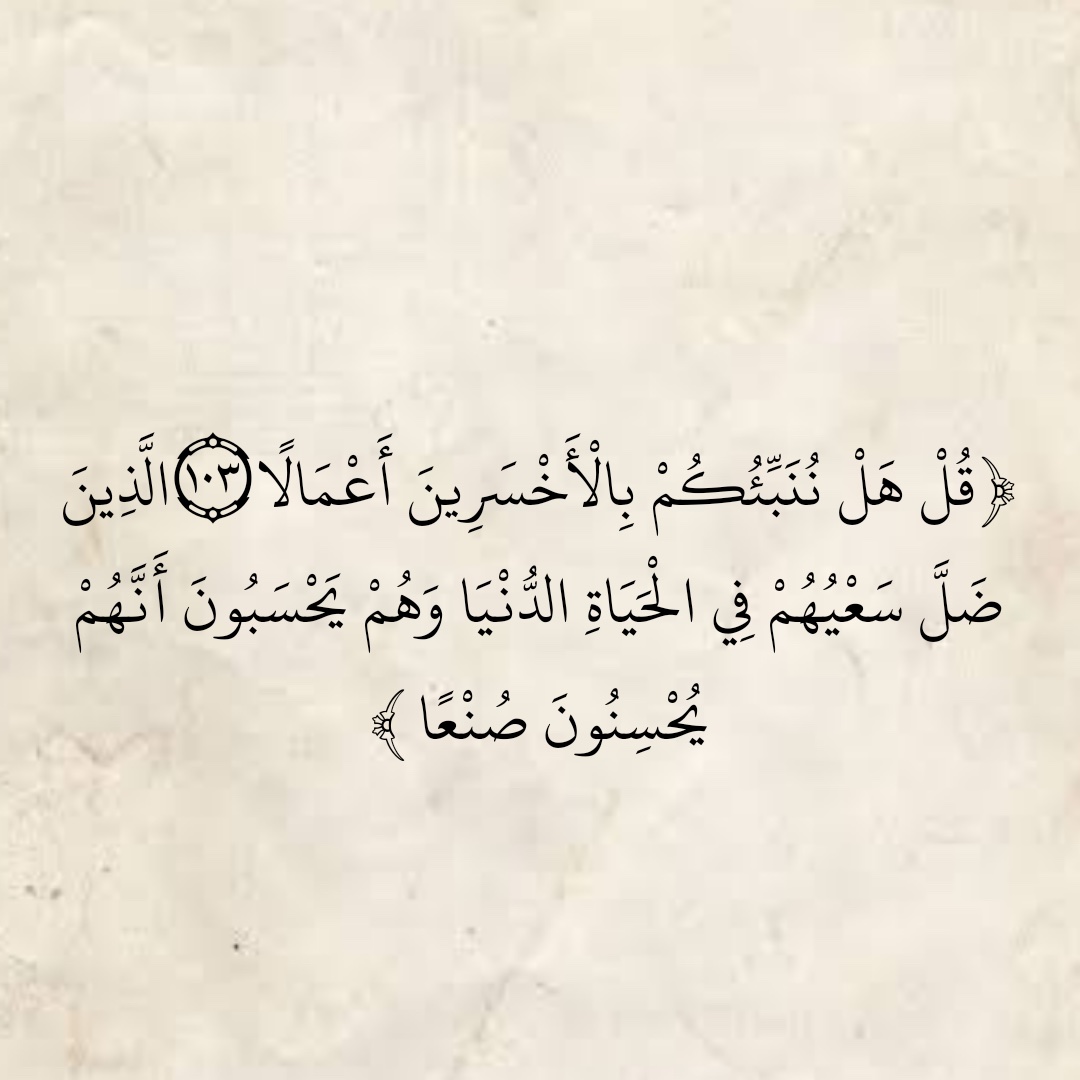 ﴿قُلْ هَلْ نُنَبِّئُكُمْ بِالْأَخْسَرِينَ أَعْمَالًا ١٠٣ الَّذِينَ
ضَلَّ سَعْيُهُمْ فِي الْحَيَاةِ الدُّنْيَا وَهُمْ يَحْسَبُونَ أَنَّهُمْ
يُحْسِنُونَ صُنْعًا ﴾